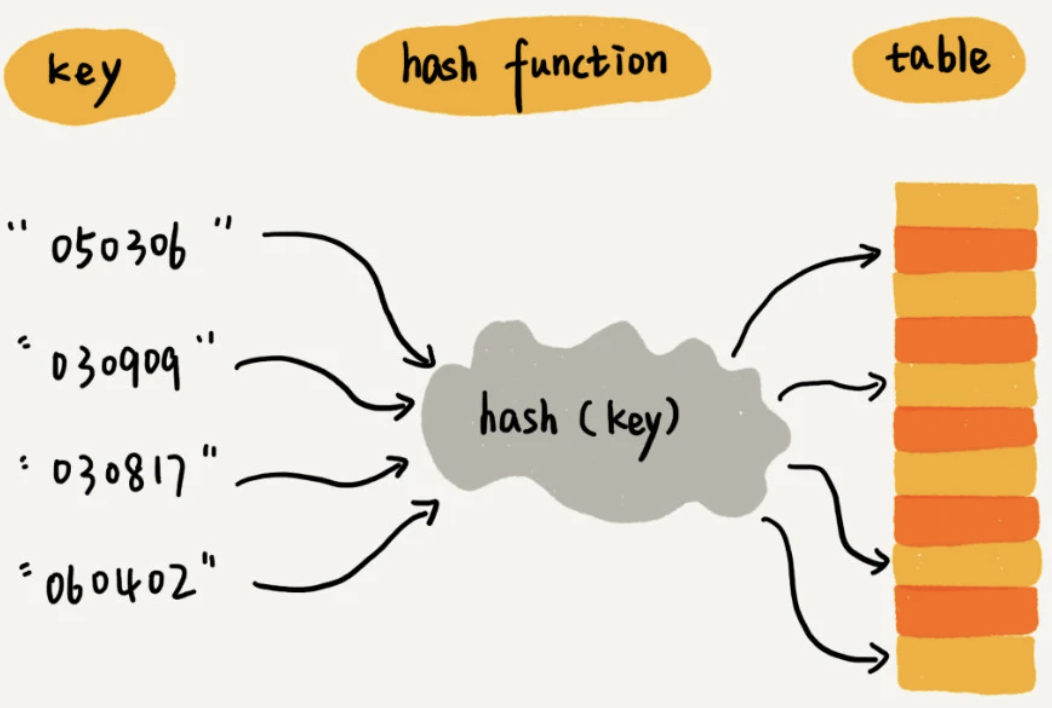 key
hash function
table
" 050306 "
" 030909 "
" 030817 "
" 060402 "
hash (key)